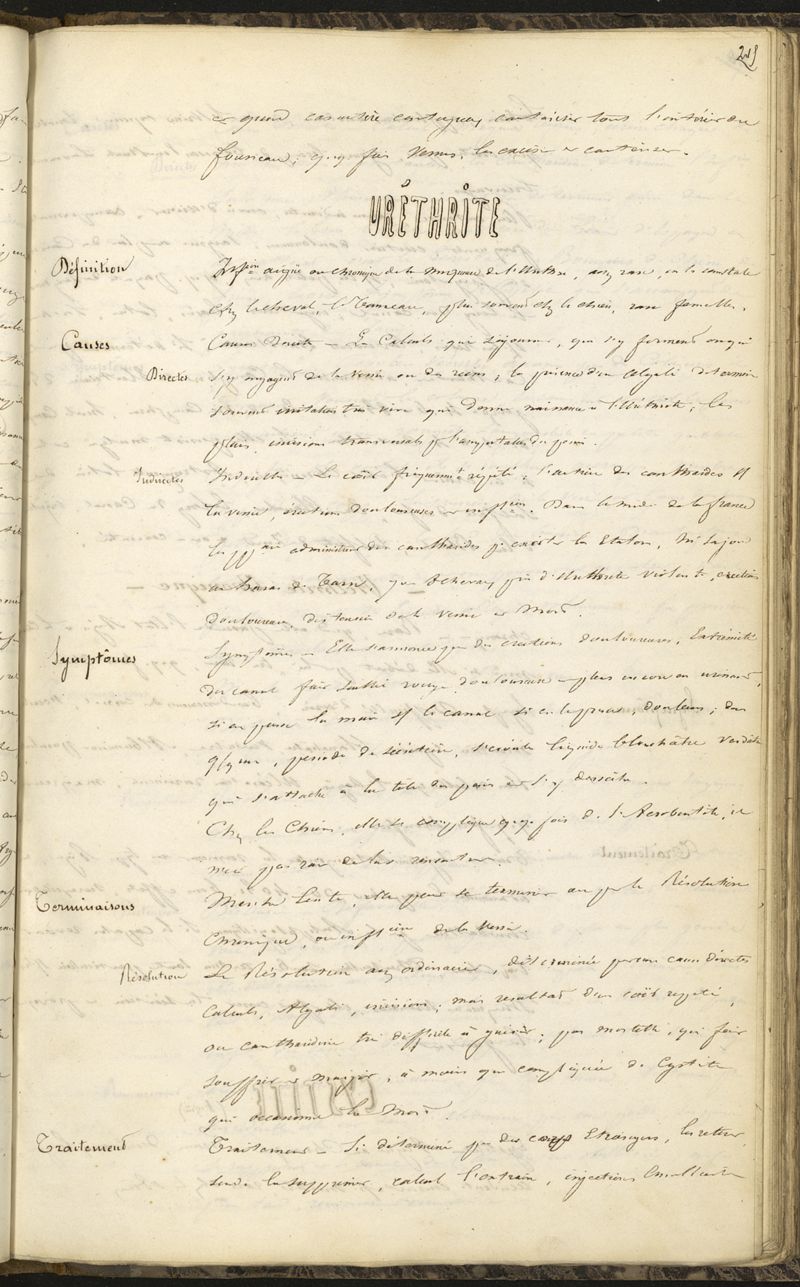 215
et quand caractère contagieux cautériser tout l'intérieur du
fourreau; qq fois verrues, les exciser et cautériser.
URÉTHRITE
Définition
Inflon aigüe ou chronique de la muqueuse de l'urèthre, assez rare, on la constate
chez le cheval, le Taureau, plus souvent chez le chien, rare femelles.
Causes
Causes Directes — Les Calculs qui séjournent, qui s'y forment ou qui
Directes
s'y engagent de la vessie ou des reins; la présence d'un algalie détermine
souvent irritation très vive qui donne naissance à l'Uréthrite, les
plaies, incisions transversales pr l'amputation du pénis.
Indirectes
Indirectes — Le coït fréquemmt répété, l'action des cantharides sr
la vessie, érections douloureuses et inflon. Dans le midi de la france
les administrer des cantharides pr exciter les Etalons, Mr Lafon
au haras de Tarn, 8 chevaux pris d'Uréthrite violente, érections
douloureuses, distension de la vessie et Mort.
Symptômes
Symptômes — Elle s'annonce par des érections douloureuses, Extrémité
du canal fait saillie rouge, douloureuse plus encore en urinant,
si on passe la main sr le canal si on le presse, douleurs; dans
qq jours, période de sécrétion, s'écoule liquide blanchâtre verdâtre
qui s'attache à la tête du pénis et s'y dessèche.
Chez les Chiens, elle se complique qq fois de l'Acrobustite, il
n'est pas rare de les rencontrer.
Terminaisons
Marche Lente, elle peut se terminer ou par la Résolution
Chronique, ou inflon de la vessie.
Résolution
La Résolution assez ordinaire, déterminée par une cause directe
Calculs, Algalie, incisions; mais résultat d'un coït répété,
ou cantharidine très difficile à guérir; pas mortelle, qui fait
souffrir et maigrir, à moins que compliquée de Cystite
qui occasionne la Mort.
Traitement
Traitement — Si déterminé par des corps Etrangers, les retirer
sonde la supprimer, calcul l'extraire, injections émollientes